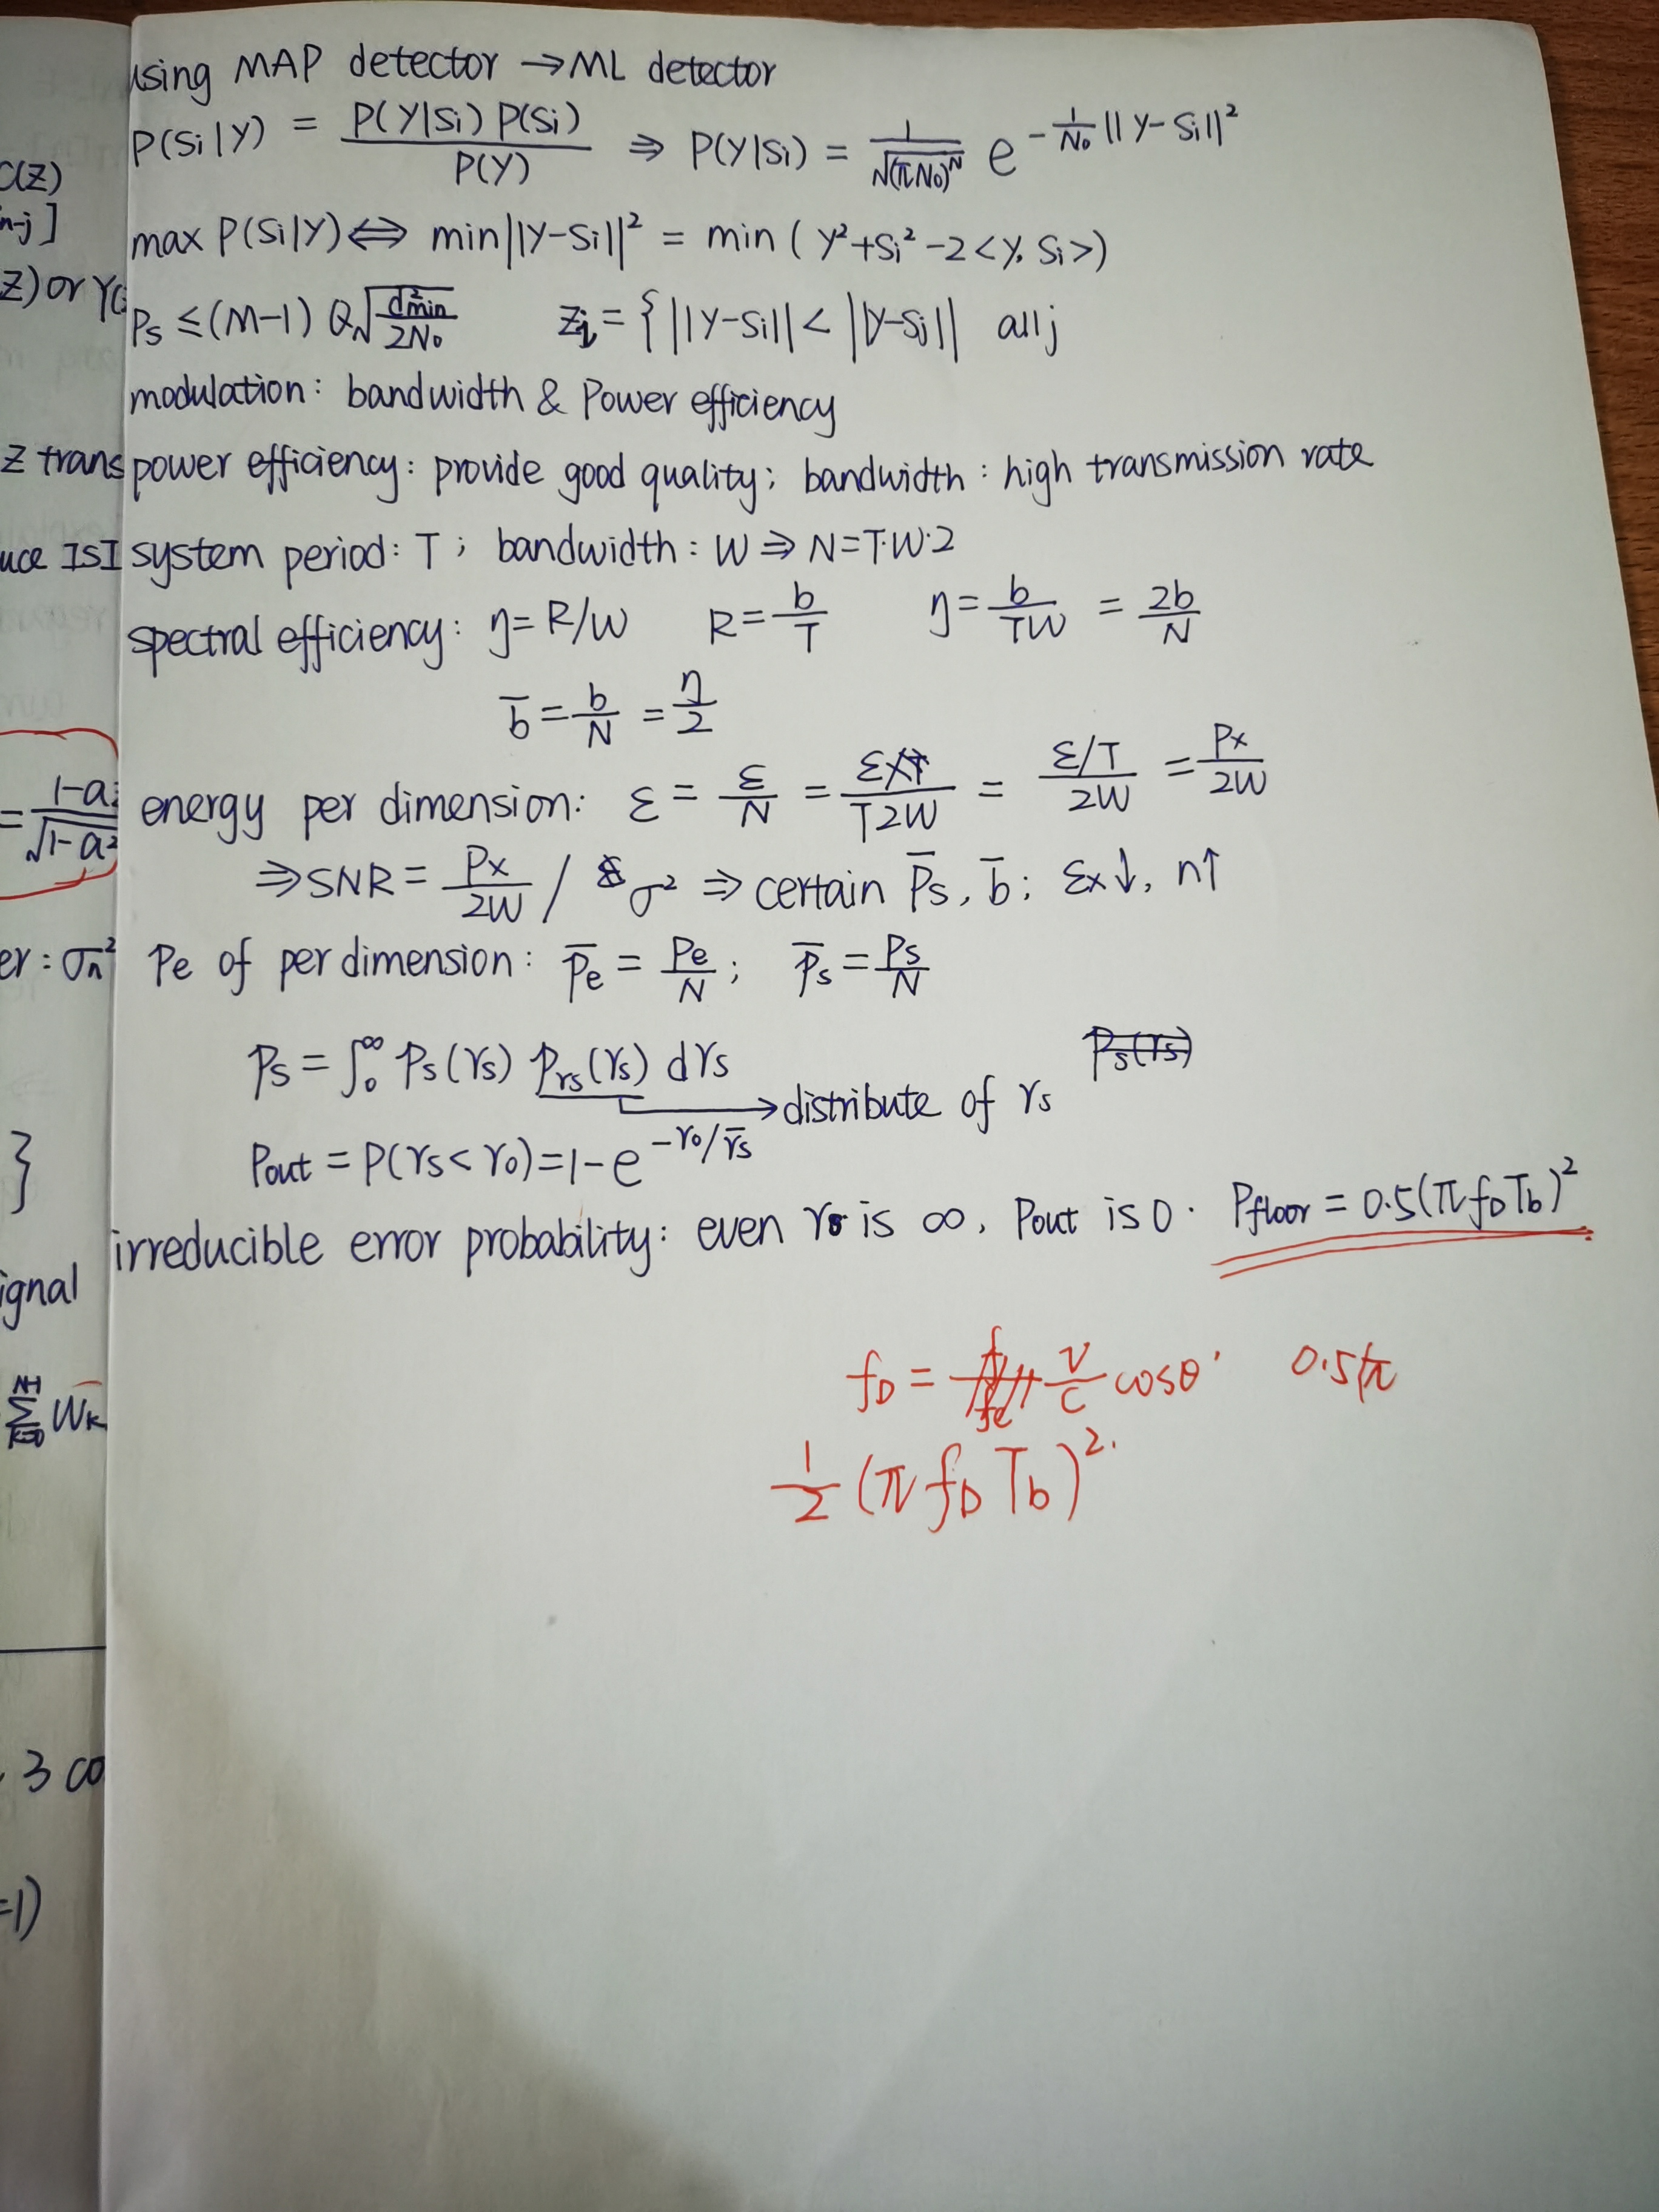 using MAP detector → ML detector
P(Si|Y) = P(Y|Si) P(Si) / P(Y) ⇒ P(Y|Si) = 1/√(πN0)^N e^{-1/N0 ||Y-Si||²}
max P(Si|Y) ⇔ min||Y-Si||² = min ( Y²+Si²-2<Y, Si>)
Ps ≤ (M-1) Q√(d²min/2N0) Zi = { ||Y-Si|| < ||Y-Sj|| all j
modulation: bandwidth & Power efficiency
power efficiency: provide good quality; bandwidth: high transmission rate
system period: T; bandwidth: W ⇒ N=T·W·2
spectral efficiency: η= R/W R= b/T η= b/TW = 2b/N
b̄ = b/N = η/2
energy per dimension: ε = ε/N = εx/T2W = ε/T / 2W = Px/2W
⇒ SNR = Px/2W / σ² ⇒ certain P̄s, b̄; εx↓, n↑
Pe of per dimension: P̄e = Pe/N; P̄s = Ps/N
Ps = ∫₀^∞ Ps(γs) Pγs(γs) dγs
Ps(γs)
→ distribute of γs
Pout = P(γs < γ0) = 1-e^{-γ0/γ̄s}
irreducible error probability: even γs is ∞, Pout is 0. Pfloor = 0.5(π fD Tb)²
fD = v/c cosθ. 0.5π
1/2 (π fD Tb)².
C(Z)
n-j]
Z) or Y(
Z trans
uce ISI
= 1-a / √1-a²
er: σn²
}
ignal
Σ k=0 N-1 Wk
3 co
=1)